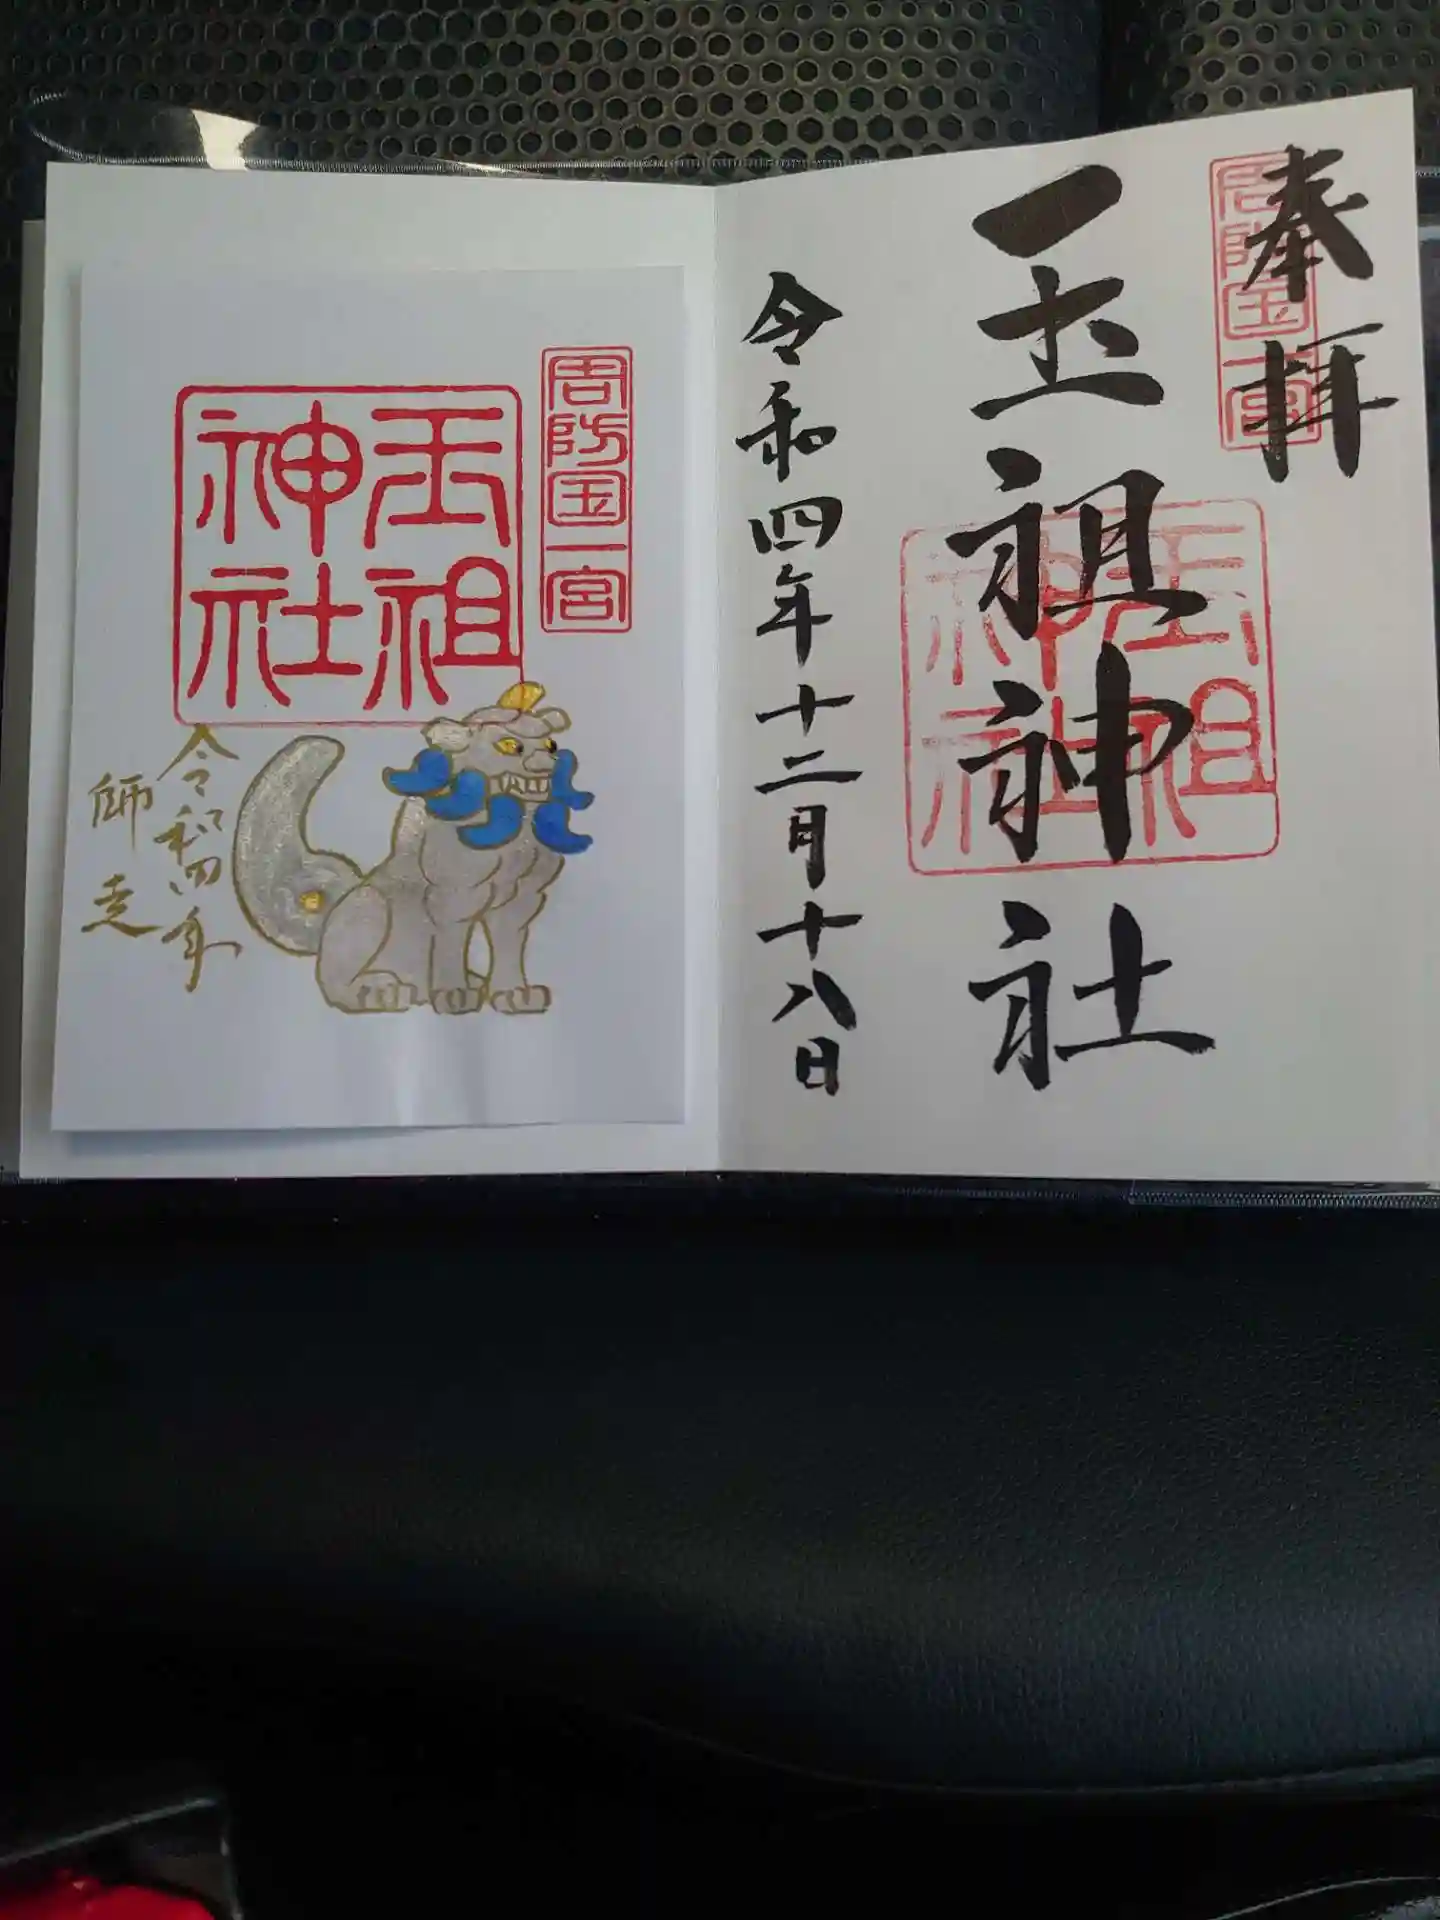 奉拝
周防国一宮
玉祖神社
玉祖神社
令和四年十二月十八日
周防国一宮
玉祖
神社
令和四年
師走